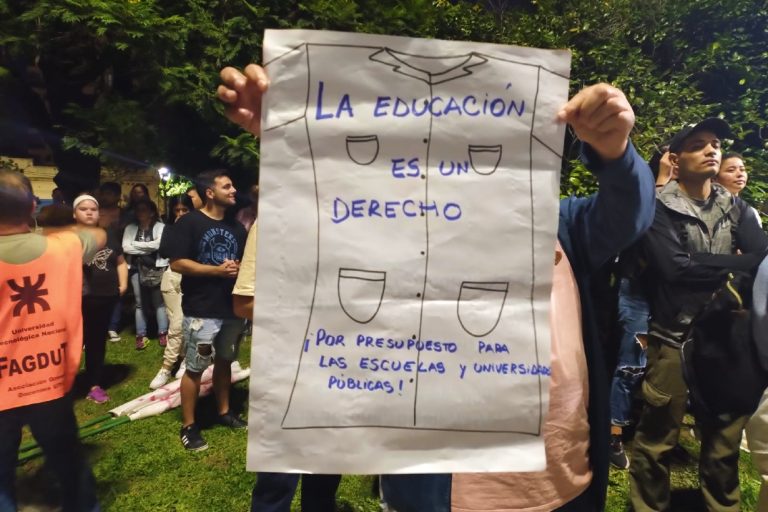 LA EDUCACIÓN
ES UN
DERECHO
¡POR PRESUPUESTO PARA
LAS ESCUELAS Y UNIVERSIDADES
PÚBLICAS!
Universidad
Tecnológica Nacional
FAGDUT
Asociación
MONSTERS